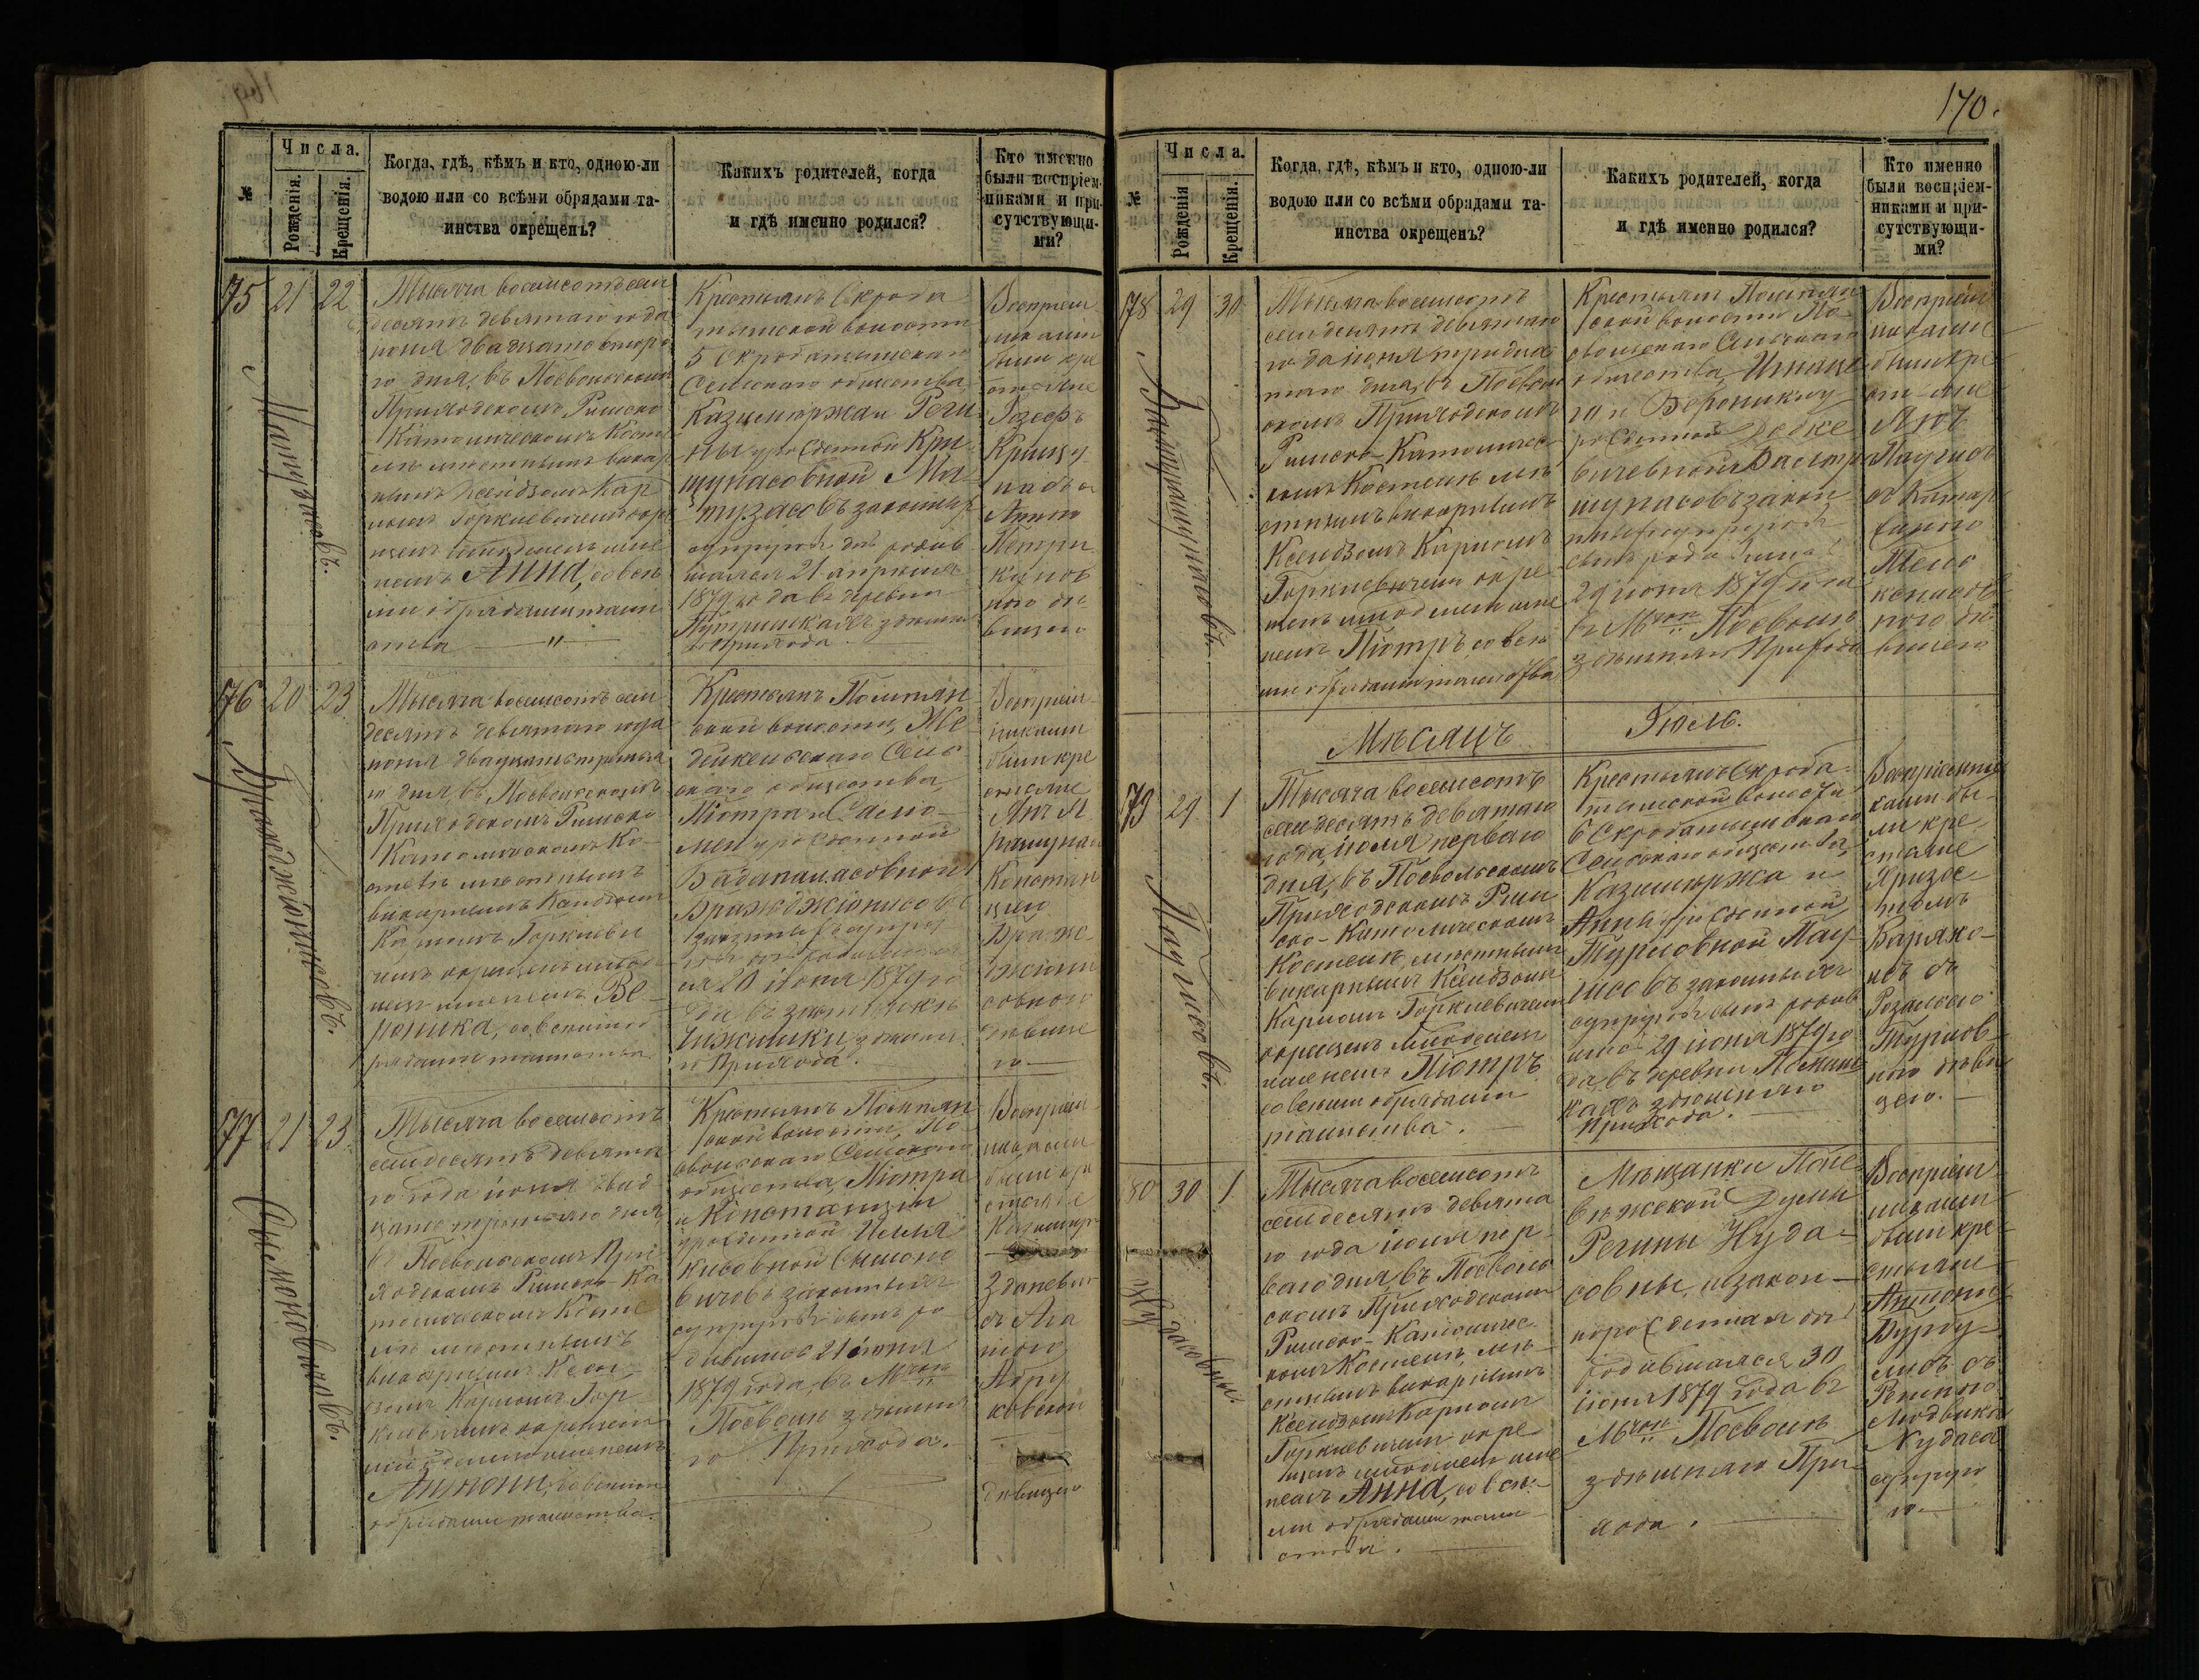 170.
№
Числа.
Рожденія.
Крещенія.
Когда, гдѣ, кѣмъ и кто, одною-ли
водою или со всѣми обрядами та-
инства окрещенъ?
Какихъ родителей, когда
и гдѣ именно родился?
Кто именно
были воспріем-
никами и при-
сутствующи-
ми?
75 21 22
Матузасовъ.
Тысяча восемсотъ сем
десятъ девятаго года
іюня двадцать второ
го дня, въ Посвольскомъ
Приходскомъ Римско
Католическомъ Косте
лѣ мѣстнымъ викар
нымъ Ксендзомъ Кар
ломъ Горкевичемъ окре
щенъ младенецъ име
немъ Анна, со всѣ
ми обрядами таин
ства — " —
Крестьянъ Скрода
тышской волости
5 Скродатышскаго
Сельскаго общества
Казимержа и Реги
ны урожденной Кри
щунасовной Ма
тузасовъ законных
супруговъ дочь родив
шаяся 21 апрѣля
1879 года въ деревни
здѣшня
го прихода.
Воспріем
никами
были кре
стьяне
Іозефъ
Крищу
насъ съ
Анною
Петри
ков
ною дѣ
вицею
76 20 23
Бражджюнисовъ.
Тысяча восемсотъ сем
десятъ девятаго года
іюня двадцать третья
го дня, въ Посвольскомъ
Приходскомъ Римско
Католическомъ Ко-
стелѣ мѣстнымъ
викарнымъ Ксендзомъ
Карломъ Горкеви
чемъ окрещенъ младе
нецъ именемъ Ве-
роника, со всѣми об
рядами таинства.
Крестьянъ Поитян
ской волости, Же
дейкельскаго Сель
скаго общества,
Піотра и Сало-
меи урожденной
Баданаласовной
Бражджюнисовъ
законныхъ супру
говъ дочь родивша
яся 20 іюня 1879 го
да въ застѣнкѣ
Чижишки здѣшня
го Прихода.
Воспріем-
никами
были кре
стьяне
Янъ А
Констан
ціею
Браж-
джюни
совною
дѣвице
ю —
77 21 23
Сымоновичовъ.
Тысяча восемсотъ
семдесятъ девята
го года іюня двад
цать третьяго дня,
въ Посвольскомъ При
ходскомъ Римско-Ка
толическомъ Косте
лѣ мѣстнымъ
викарнымъ Ксенд
зомъ Карломъ Гор
кевичемъ окрещенъ
младенецъ именемъ
Антони, со всѣми
обрядами таинства.
Крестьянъ Поитян
ской волости, По
свольскаго Сельскаго
общества, Піотра
и Констанціи
урожденной
Сымоно
вичовъ законныхъ
супруговъ сынъ ро
дившійся 21 іюня
1879 года, въ М-чкѣ
Посволь здѣшня
го Прихода.
Воспріем
никами
были кре
стьяне
Казимір
Зданевич
съ Ан
ною
дѣвицею
№
Числа.
Рожденія
Крещенія.
Когда, гдѣ, кѣмъ и кто, одною-ли
водою или со всѣми обрядами та-
инства окрещенъ?
Какихъ родителей, когда
и гдѣ именно родился?
Кто именно
были воспріем-
никами и при-
сутствующи-
ми?
78 29 30
Тысяча восемсотъ
семдесятъ девятаго
года іюня тридца
таго дня, въ Посволь
скомъ Приходскомъ
Римско-Католичес-
комъ Костелѣ мѣ
стнымъ викарнымъ
Ксендзомъ Карломъ
Горкевичемъ окре
щенъ младенецъ име
немъ Піотръ, со всѣ
ми обрядами таинства
Крестьянъ Поитян
ской волости По-
свольскаго Сельскаго
общества, Игнаце
го и Вероники у
рожденной
законныхъ супруговъ
сынъ родившійся
29 іюня 1879 года
въ М-чкѣ Посволь
здѣшняго Прихода
Воспріем
никами
были кре
стьяне
Янъ
Паугис
съ Катар
жиною
дѣ
вицею
Мѣсяцъ Іюль.
79 29 1
Паугисовъ.
Тысяча восемсотъ
семдесятъ девятаго
года, іюля перваго
дня, въ Посвольскомъ
Приходскомъ Рим
ско-Католическомъ
Костелѣ, мѣстнымъ
викарнымъ Ксендзомъ
Карломъ Горкевичемъ
окрещенъ младенецъ
именемъ Піотръ
со всѣми обрядами
таинства. —
Крестьянъ Скрода-
тышской волости
6 Скродатышскаго
Сельскаго общества,
Казимержа и
Анны урожденной
Турловной Пау-
гисовъ законныхъ
супруговъ сынъ родив
шійся 29 іюня 1879 го
да, въ деревни
здѣшняго
Прихода. —
Воспріемни
ками бы-
ли кре
стьяне
съ
Розаліею
Турлов-
ною дѣви
цею. —
80 30 1
Худасовны.
Тысяча восемсотъ
семдесятъ девята
го года іюля пер-
ваго дня, въ Посволь
скомъ Приходскомъ
Римско-Католичес-
комъ Костелѣ, мѣ-
стнымъ викарнымъ
Ксендзомъ Карломъ
Горкевичемъ окре-
щенъ младенецъ име
немъ Анна, со всѣ-
ми обрядами таин-
ства. —
Мѣщанки Поне-
вѣжской Думы
Регины Худа-
совны, незакон-
норожденная дочь
родившаяся 30
іюня 1879 года въ
М-чкѣ Посволь
здѣшняго При-
хода. —
Воспріем
никами
были кре-
стьяне
Антоні
съ
Людвика
Худаса
супруго
ю —